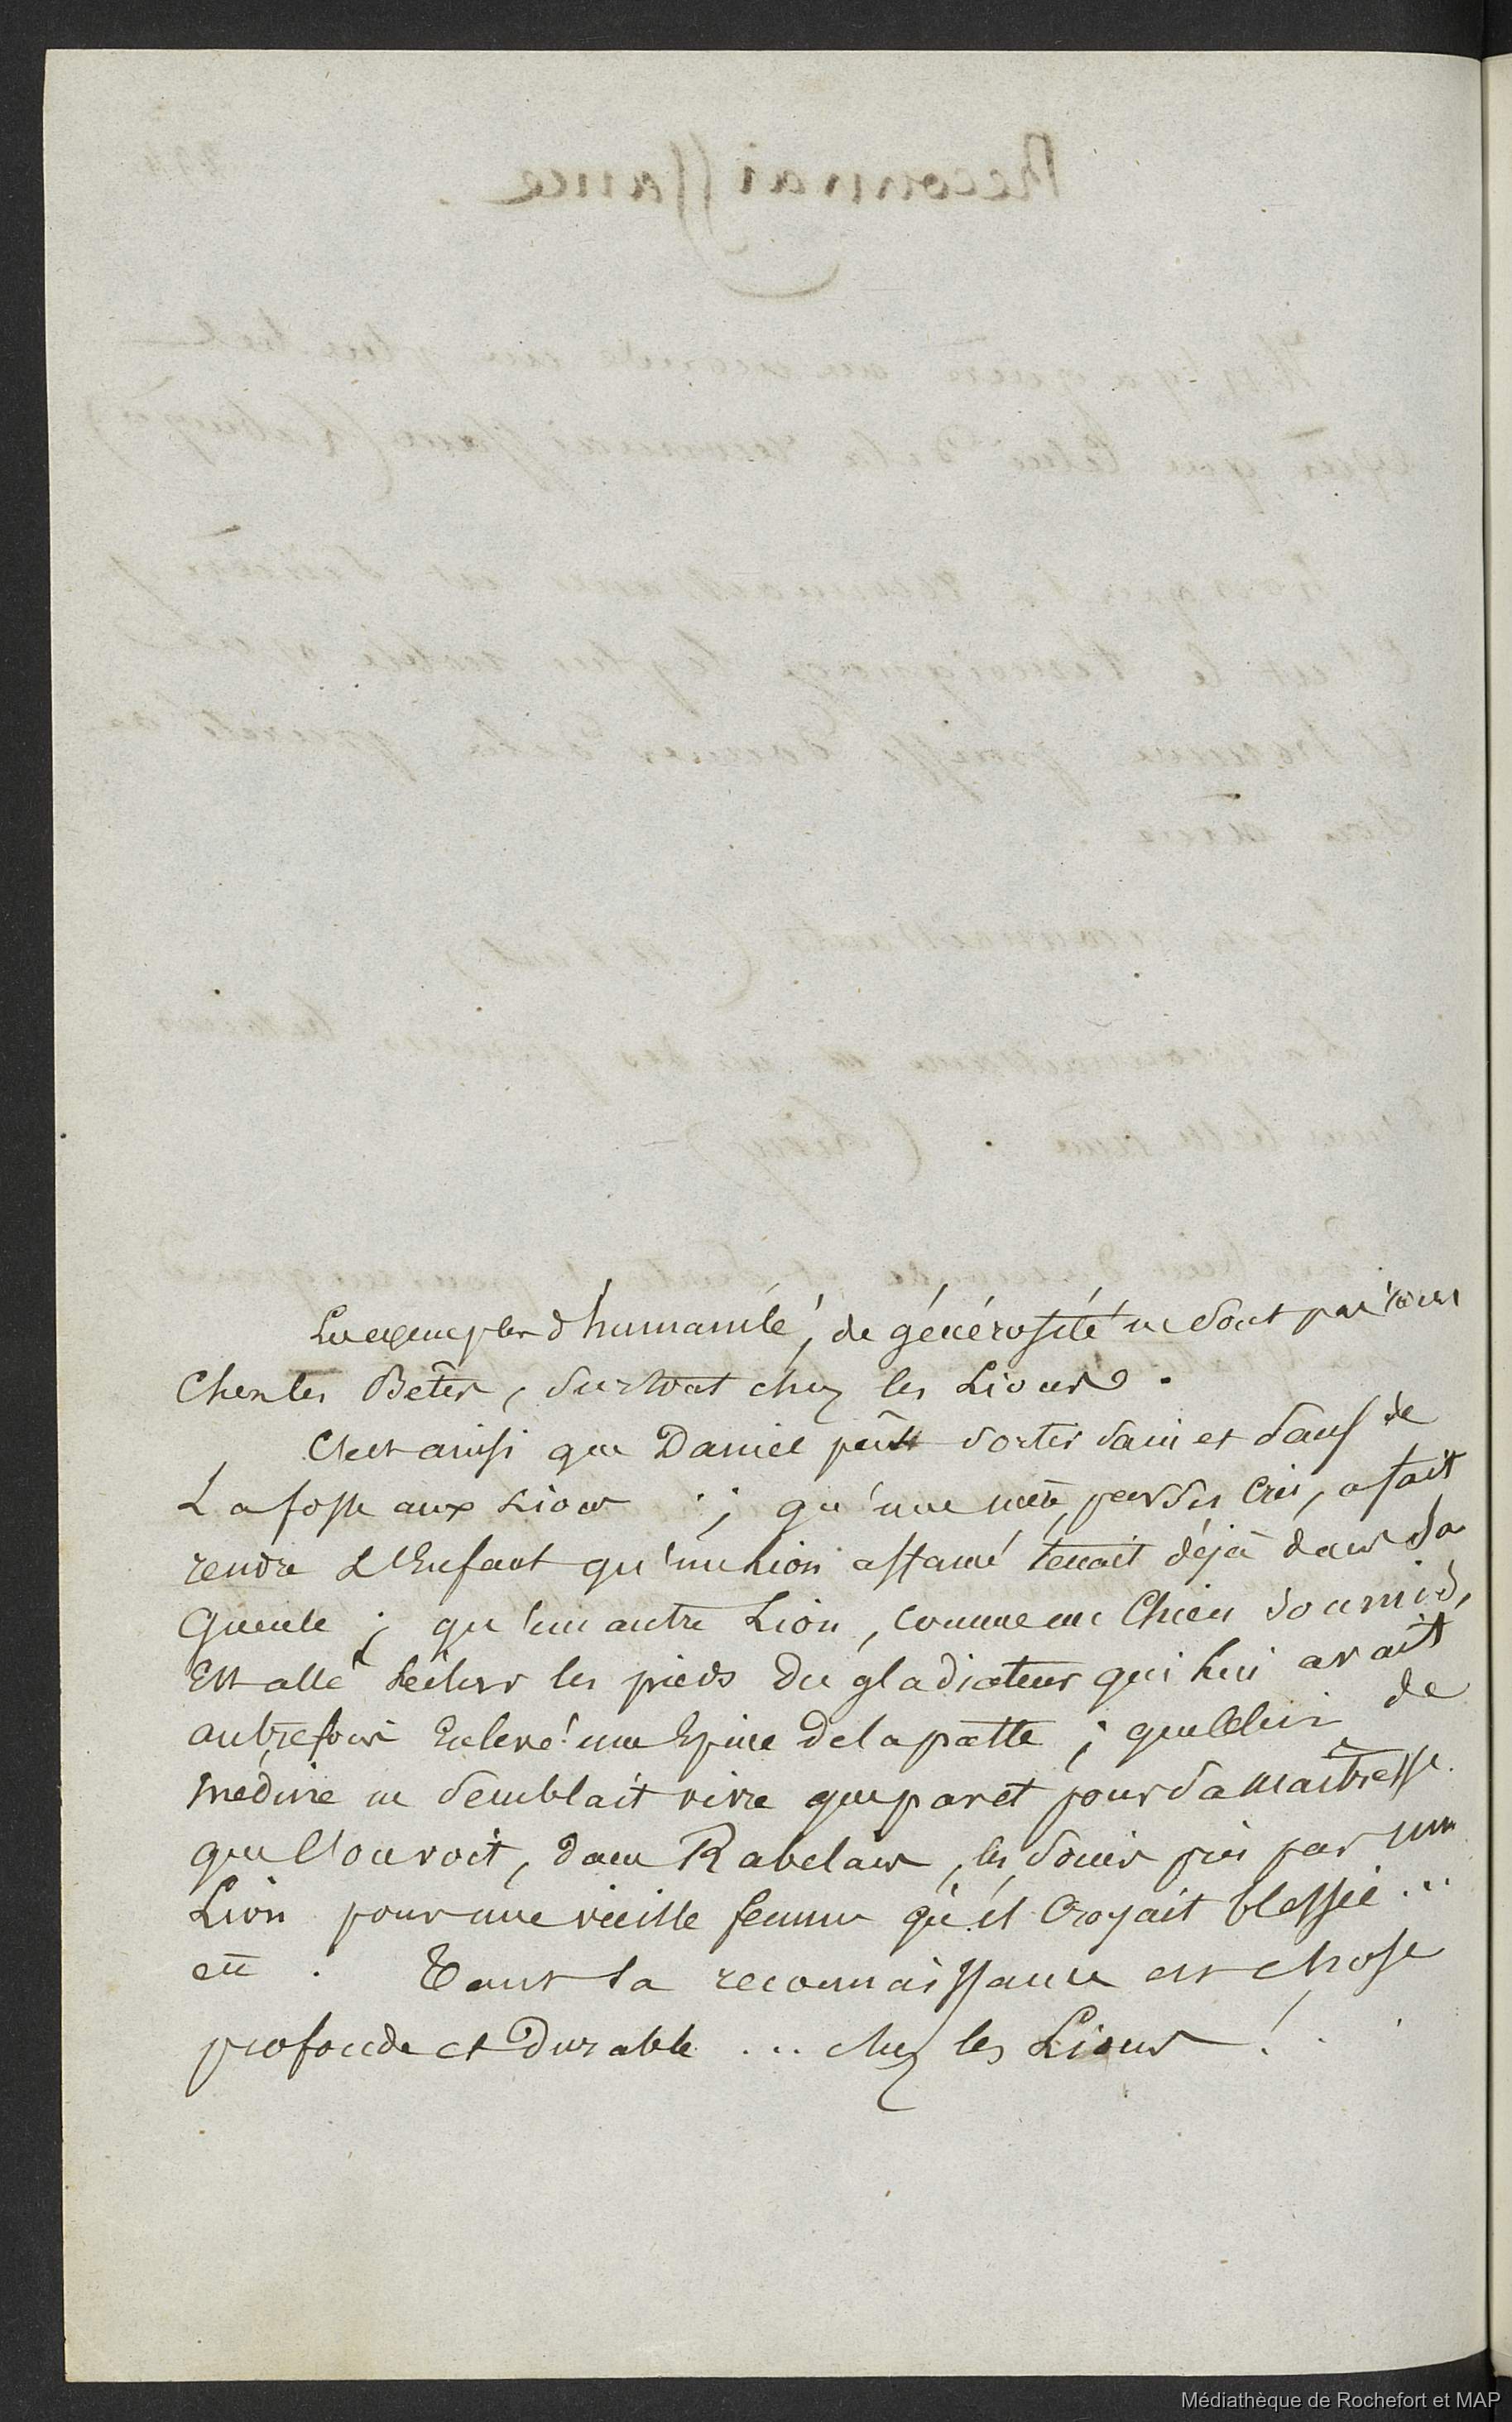 Les exemples d'humanité, de générosité ne sont pas rares
Chez les Bêtes, surtout chez les Lions.
C'est ainsi que Daniel pût sortir sain et sauf de
La fosse aux Lions ; qu'une mère, par ses Cris, a fait
rendre L'Enfant qu'un Lion affamé tenait déjà dans sa
Gueule ; qu'un autre Lion, comme un Chien soumis,
Est allé Lécher les pieds du gladiateur qui lui avait
autrefois Enlevé une Epine de la patte ; que celui de
médine ne semblait vivre que par et pour sa maitresse
que l'on voit, dans Rabelais, les soins pris par un
Lion pour une vieille femme qu'il Croyait blessée ...
etc . Tant la reconnaissance est chose
profonde et Durable ... chez les Lions !
Médiathèque de Rochefort et MAP